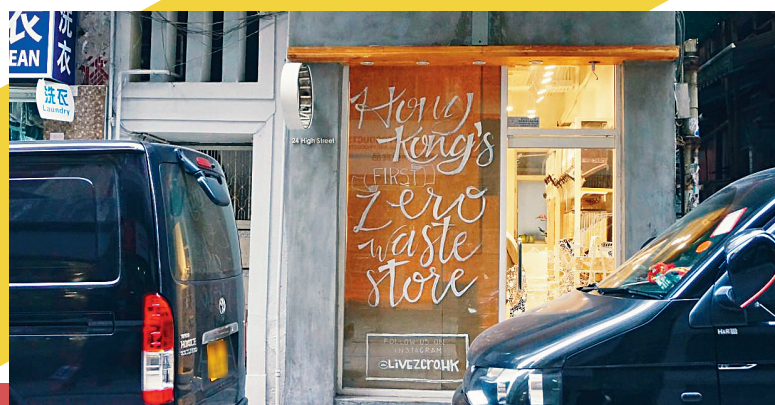 衣
洗
衣
EAN
洗衣
Laundry
24 High Street
Hong
Kong's
(FIRST)
Zero
waste
store
FOLLOW US ON
INSTAGRAM
@LIVEZEROHK
HIACE